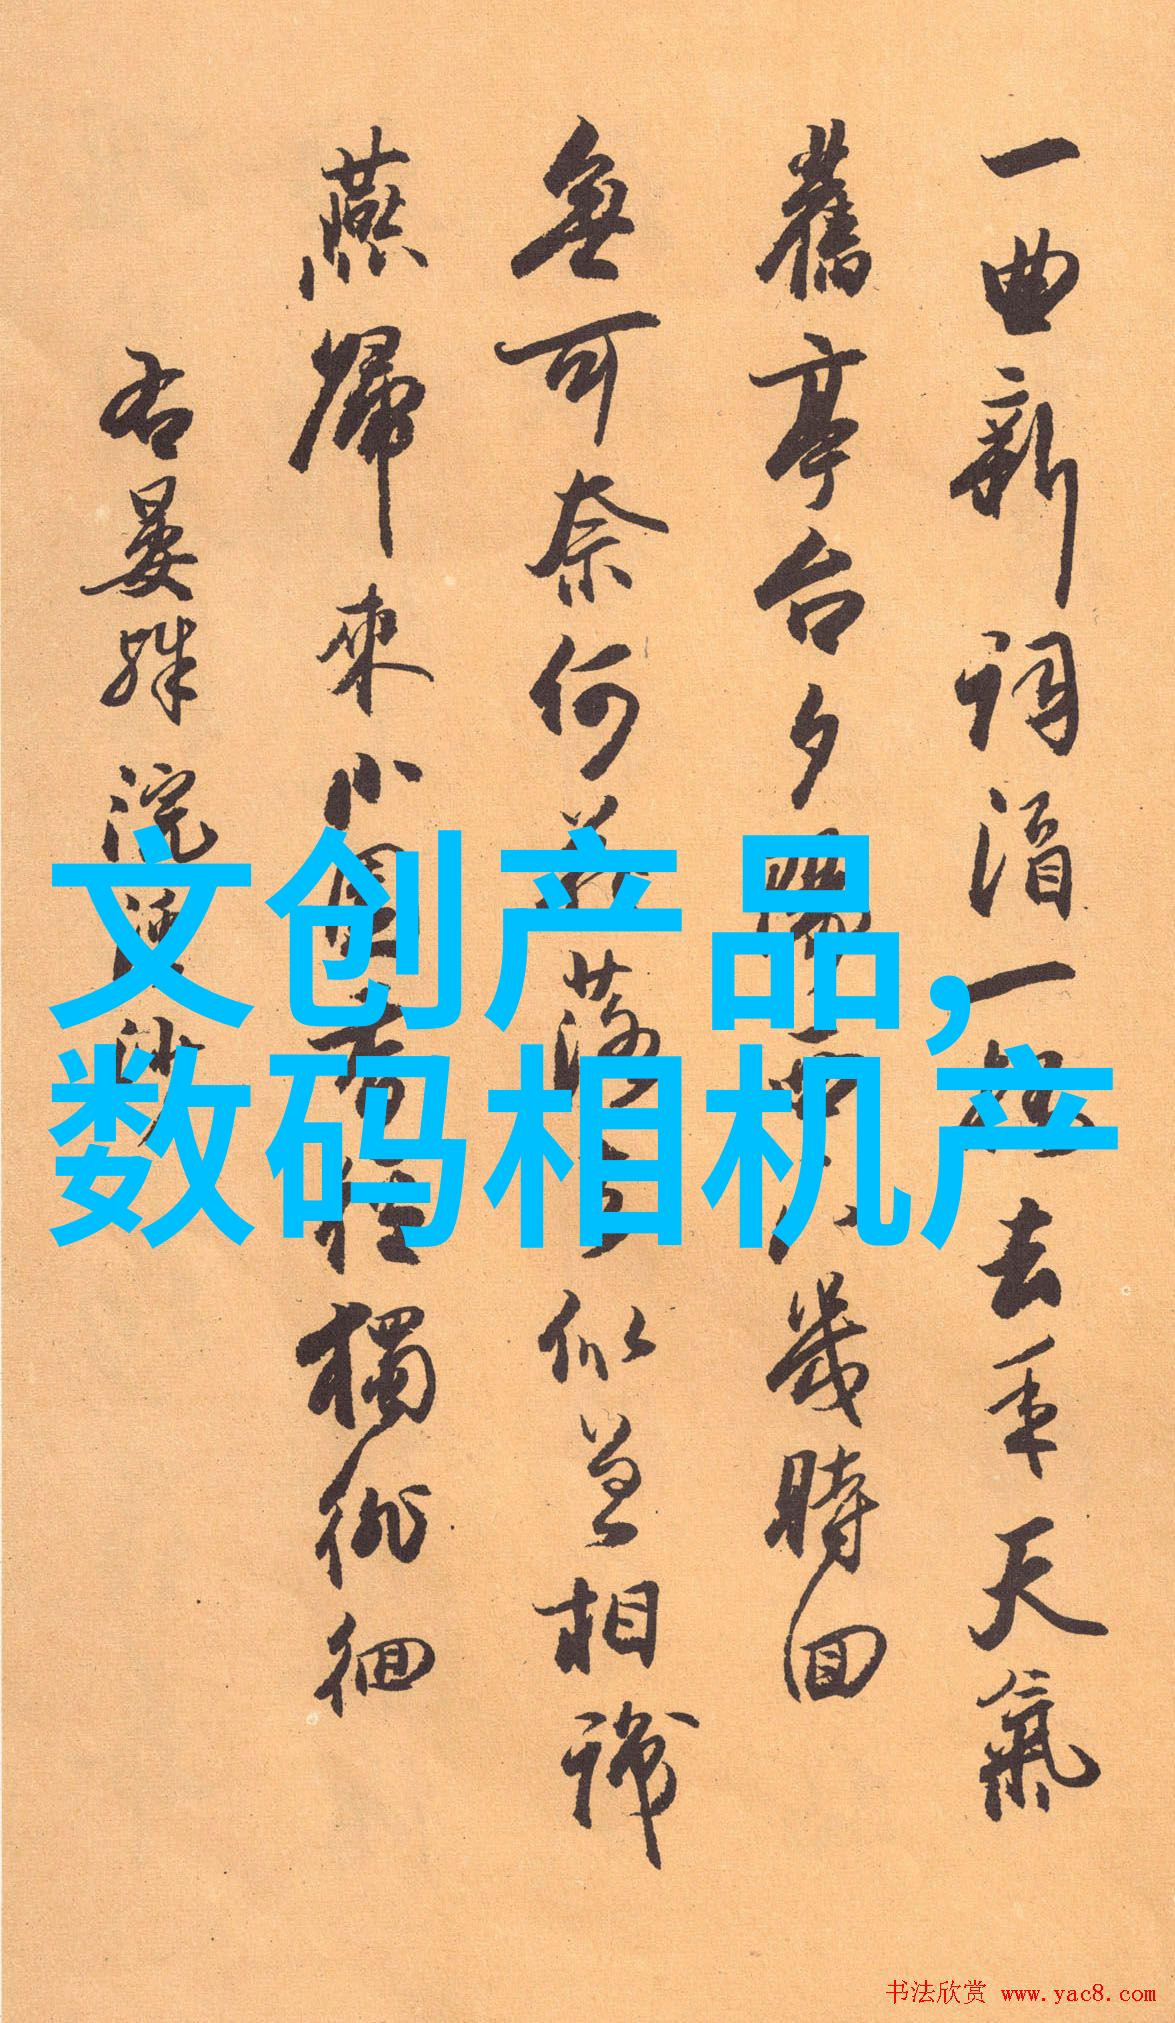 一曲新詞酒一杯去年天氣
舊亭台夕陽西下幾時回
無可奈何花落去似曾相識
燕歸來小園香徑獨徘徊
右晏殊浣溪沙
文创产品,
数码相机产
书法欣赏 www.yac8.com